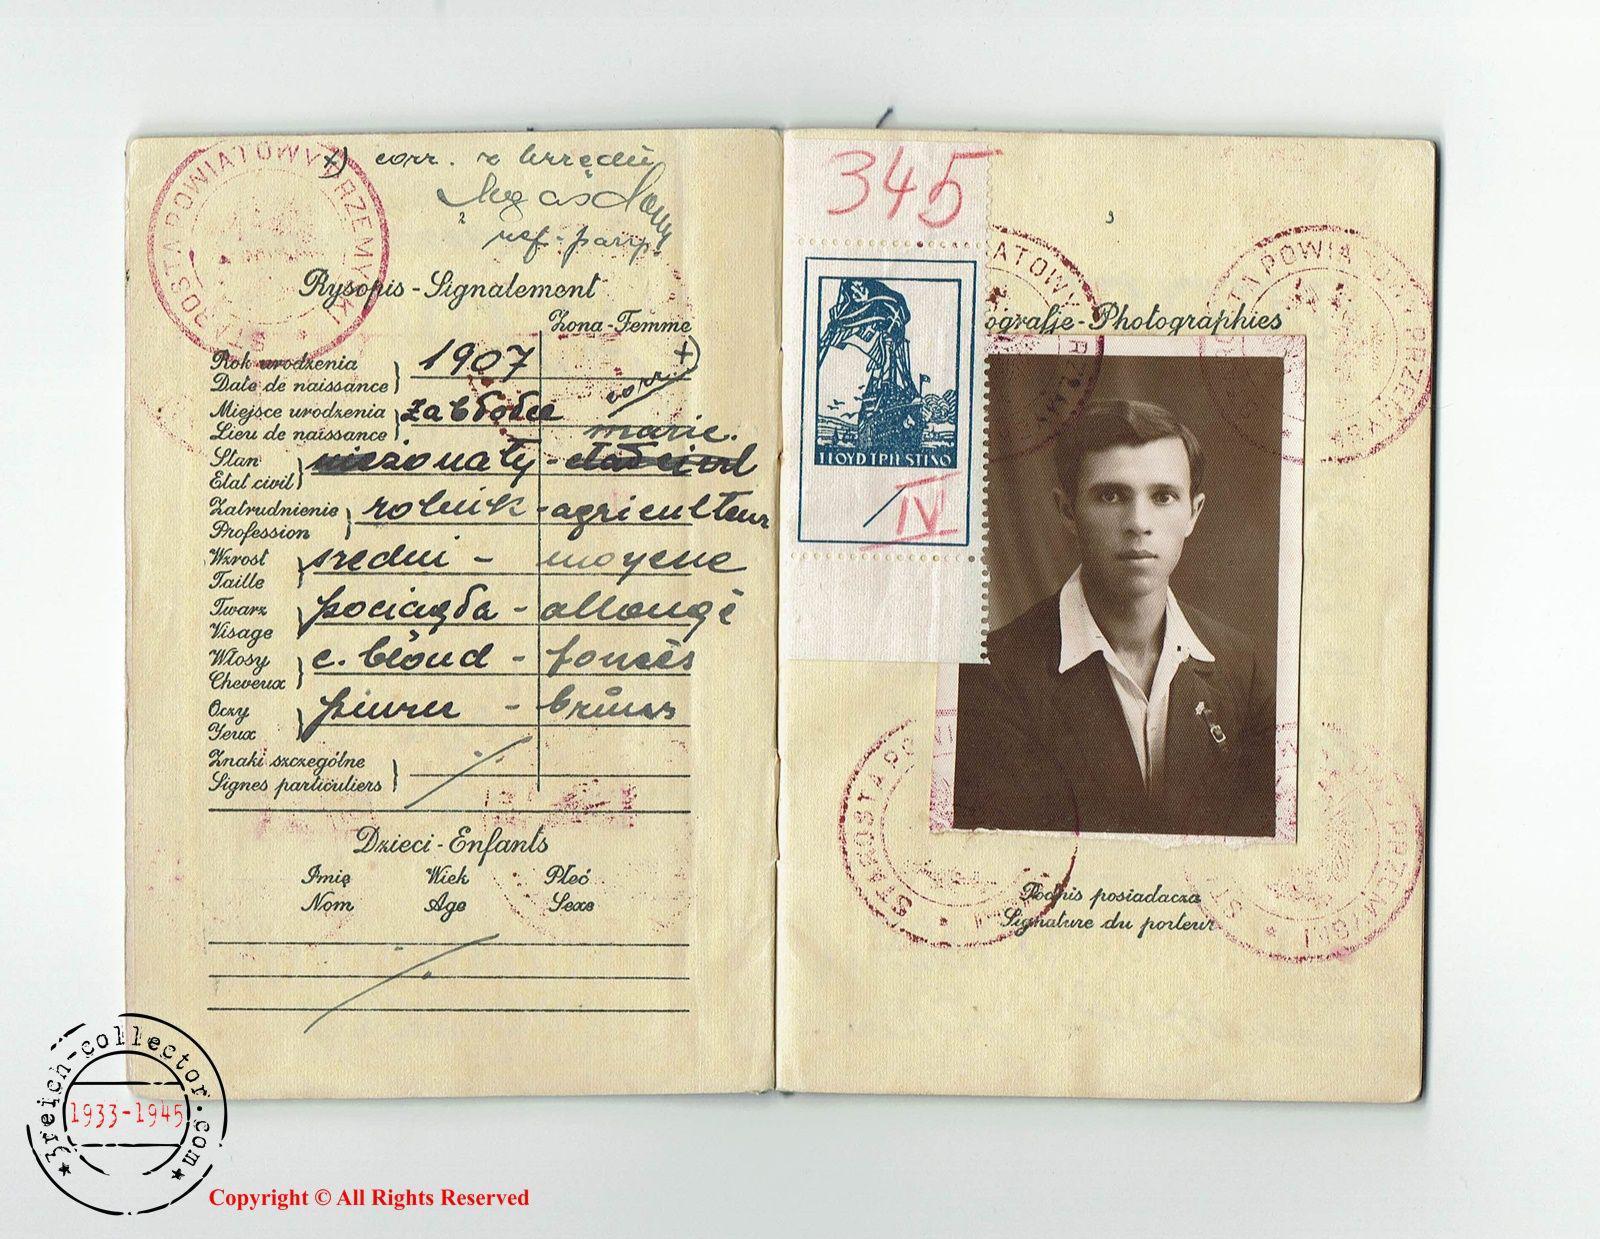 STAROSTA POWIATOWY PRZEMYSKI
x) corr. z urzędu
2
ref. paszp.
Rysopis - Signalement
Żona - Femme
Rok urodzenia
Date de naissance
1907
x)
corr.
Miejsce urodzenia
Lieu de naissance
Zabłotce
marié.
Stan
Etat civil
nieżonaty -
Zatrudnienie
Profession
rolnik - agriculteur
Wzrost
Taille
średni - moyene
Twarz
Visage
pociągła - allongé
Włosy
Cheveux
c. blond - foncés
Oczy
Yeux
piwne - bruns
Znaki szczególne
Signes particuliers
Dzieci - Enfants
Imię Wiek Płeć
Nom Age Sexe
345
LLOYD TRIESTINO
IV
3
ografje - Photographies
STAROSTA POWIATOWY PRZEMYSKI
Podpis posiadacza
Signature du porteur
3reich-collector.com
1933-1945
Copyright © All Rights Reserved